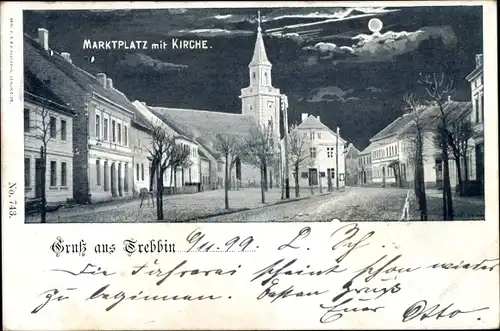 MARKTPLATZ mit KIRCHE.
No. 743.
Gruß aus Trebbin 6/11. 99. L. Sch.
Die Fahrerei scheint schon wieder
zu beginnen. Besten Gruß
Euer Otto.